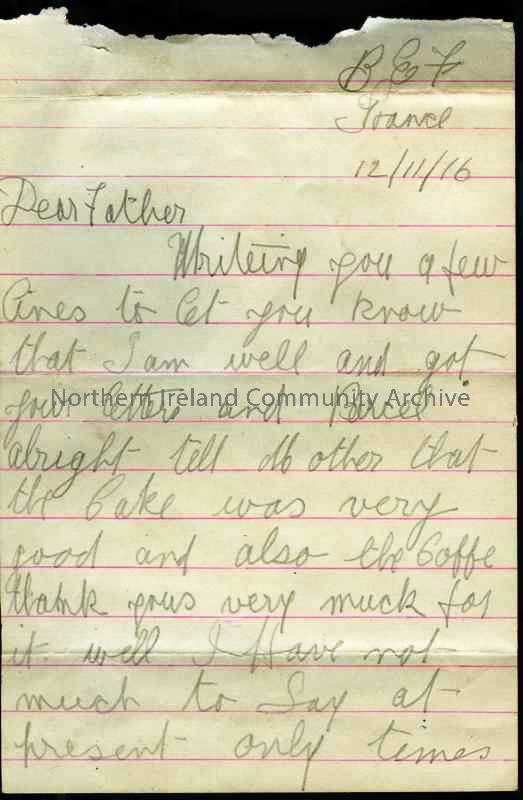 B E F
France
12/11/16
Dear Father
Writeing you a few
lines to let you know
that I am well and got
your letters and Parcel
Northern Ireland Community Archive
alright tell Mother that
the Cake was very
good and also the Coffe
thank yous very much for
it. well I Have not
much to Say at
present only times